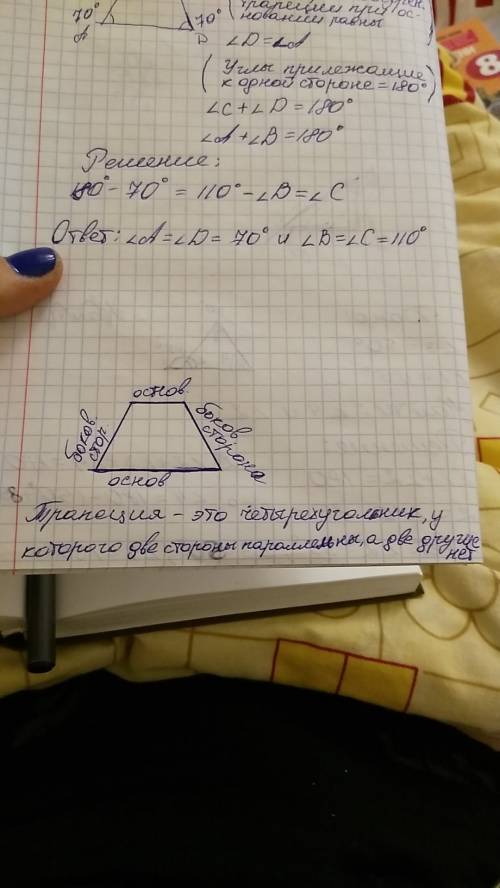 70°
70°
A
D
трапеции при ос-
новании равны
∠D=∠A
(Углы прилежащие
к одной стороне=180°)
∠C+∠D=180°
∠A+∠B=180°
Решение:
180°-70°=110°-∠B=∠C
Ответ:∠A=∠D=70° и ∠B=∠C=110°
основ.
боков.
стор.
боков.
сторона
основ
8
Трапеция - это четырехугольник, у
которого две стороны параллельны, а две другие
нет